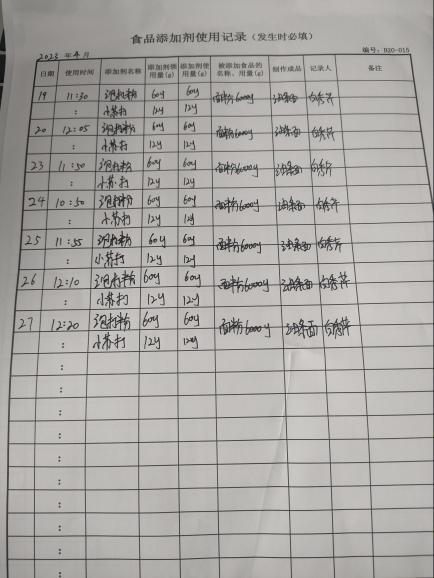 食品添加剂使用记录（发生时必填）
2023 年 4 月
编号：B20-015
日期 使用时间 添加剂名称 添加剂领用量(g) 添加剂使用量(g) 被添加食品的名称、用量(g) 制作成品 记录人 备注
19 11:30 泡打粉 60g 60g 面粉6000g 油条面 白秀芹
: 小苏打 12g 12g
20 12:05 泡打粉 60g 60g 面粉6000g 油条面 白秀芹
: 小苏打 12g 12g
23 11:50 泡打粉 60g 60g 面粉6000g 油条面 白秀芹
: 小苏打 12g 12g
24 10:50 泡打粉 60g 60g 面粉6000g 油条面 白秀芹
: 小苏打 12g 12g
25 11:55 泡打粉 60g 60g 面粉6000g 油条面 白秀芹
: 小苏打 12g 12g
26 12:10 泡打粉 60g 60g 面粉6000g 油条面 白秀芹
: 小苏打 12g 12g
27 12:20 泡打粉 60g 60g 面粉6000g 油条面 白秀芹
: 小苏打 12g 12g
:
:
:
:
:
:
:
:
: